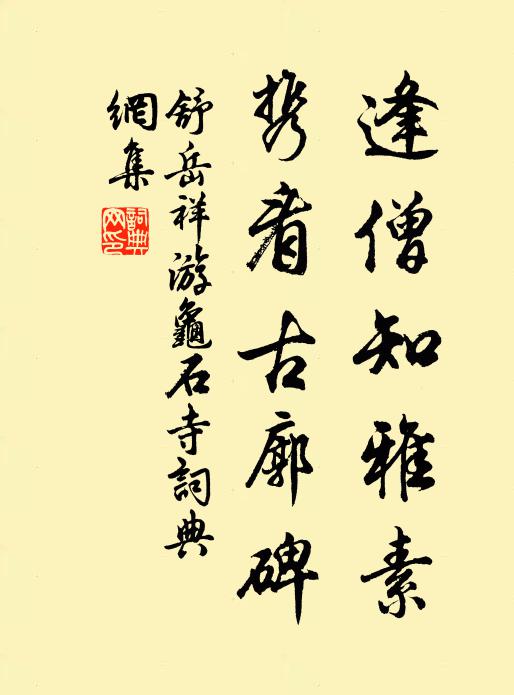 逢僧知雅素
携看古廓碑
舒岳祥游龜石寺詞典
網集
詞典網印